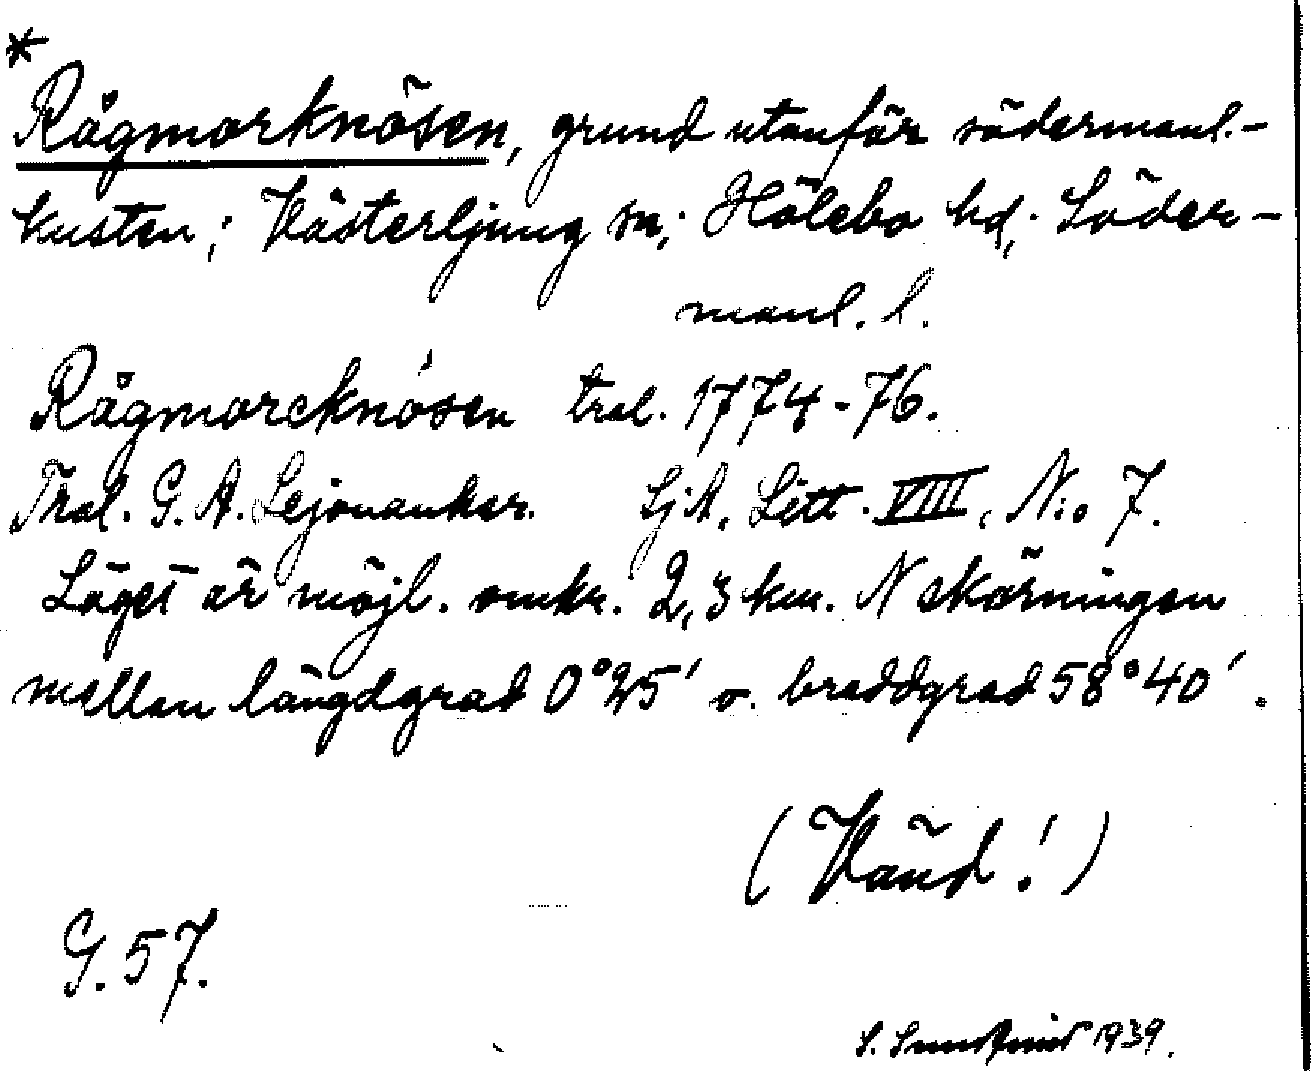 *
Rågmorknösen, grund utanför södermanl.-
kusten; Västerljung sn; Hölebo hd; Söder-
manl. l.
Rågmorcknösen tral. 1774-76.
Tral. G. A. Lejonanker. SjA. Litt. VIII, N:o 7.
Läget är möjl. omkr. 2,3 km. N skärningen
mellan längdgrad 0°25' o. breddgrad 58°40'.
(Vänd!)
G. 57.
S. 1939.